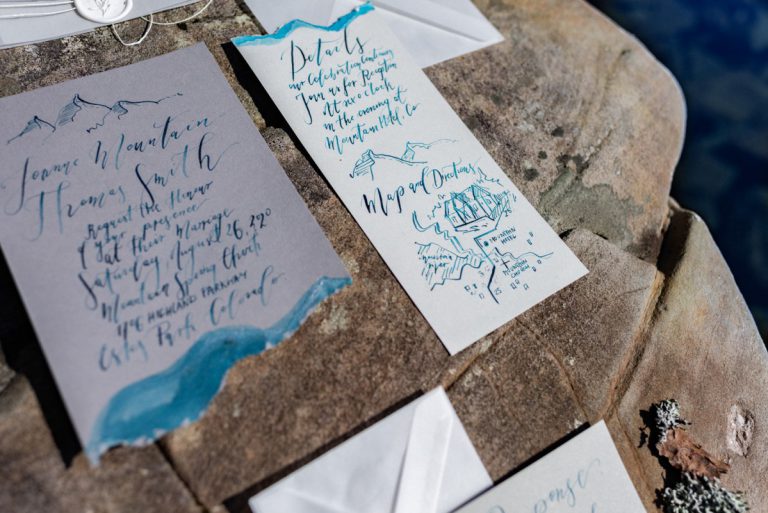 Joanne Mountain
Thomas Smith
Request the Honour
of your presence
at their Marriage
Saturday August 26,
Mountain Spring Church
HIGHLAND PARKWAY
Estes Park Colorado
Details
our Celebration Continues
Join us for Reception
At six o'clock
in the evening at
Mountain Hotel, Co
Map and Directions
MOUNTAIN
HOTEL
MOUNTAIN
25
Response